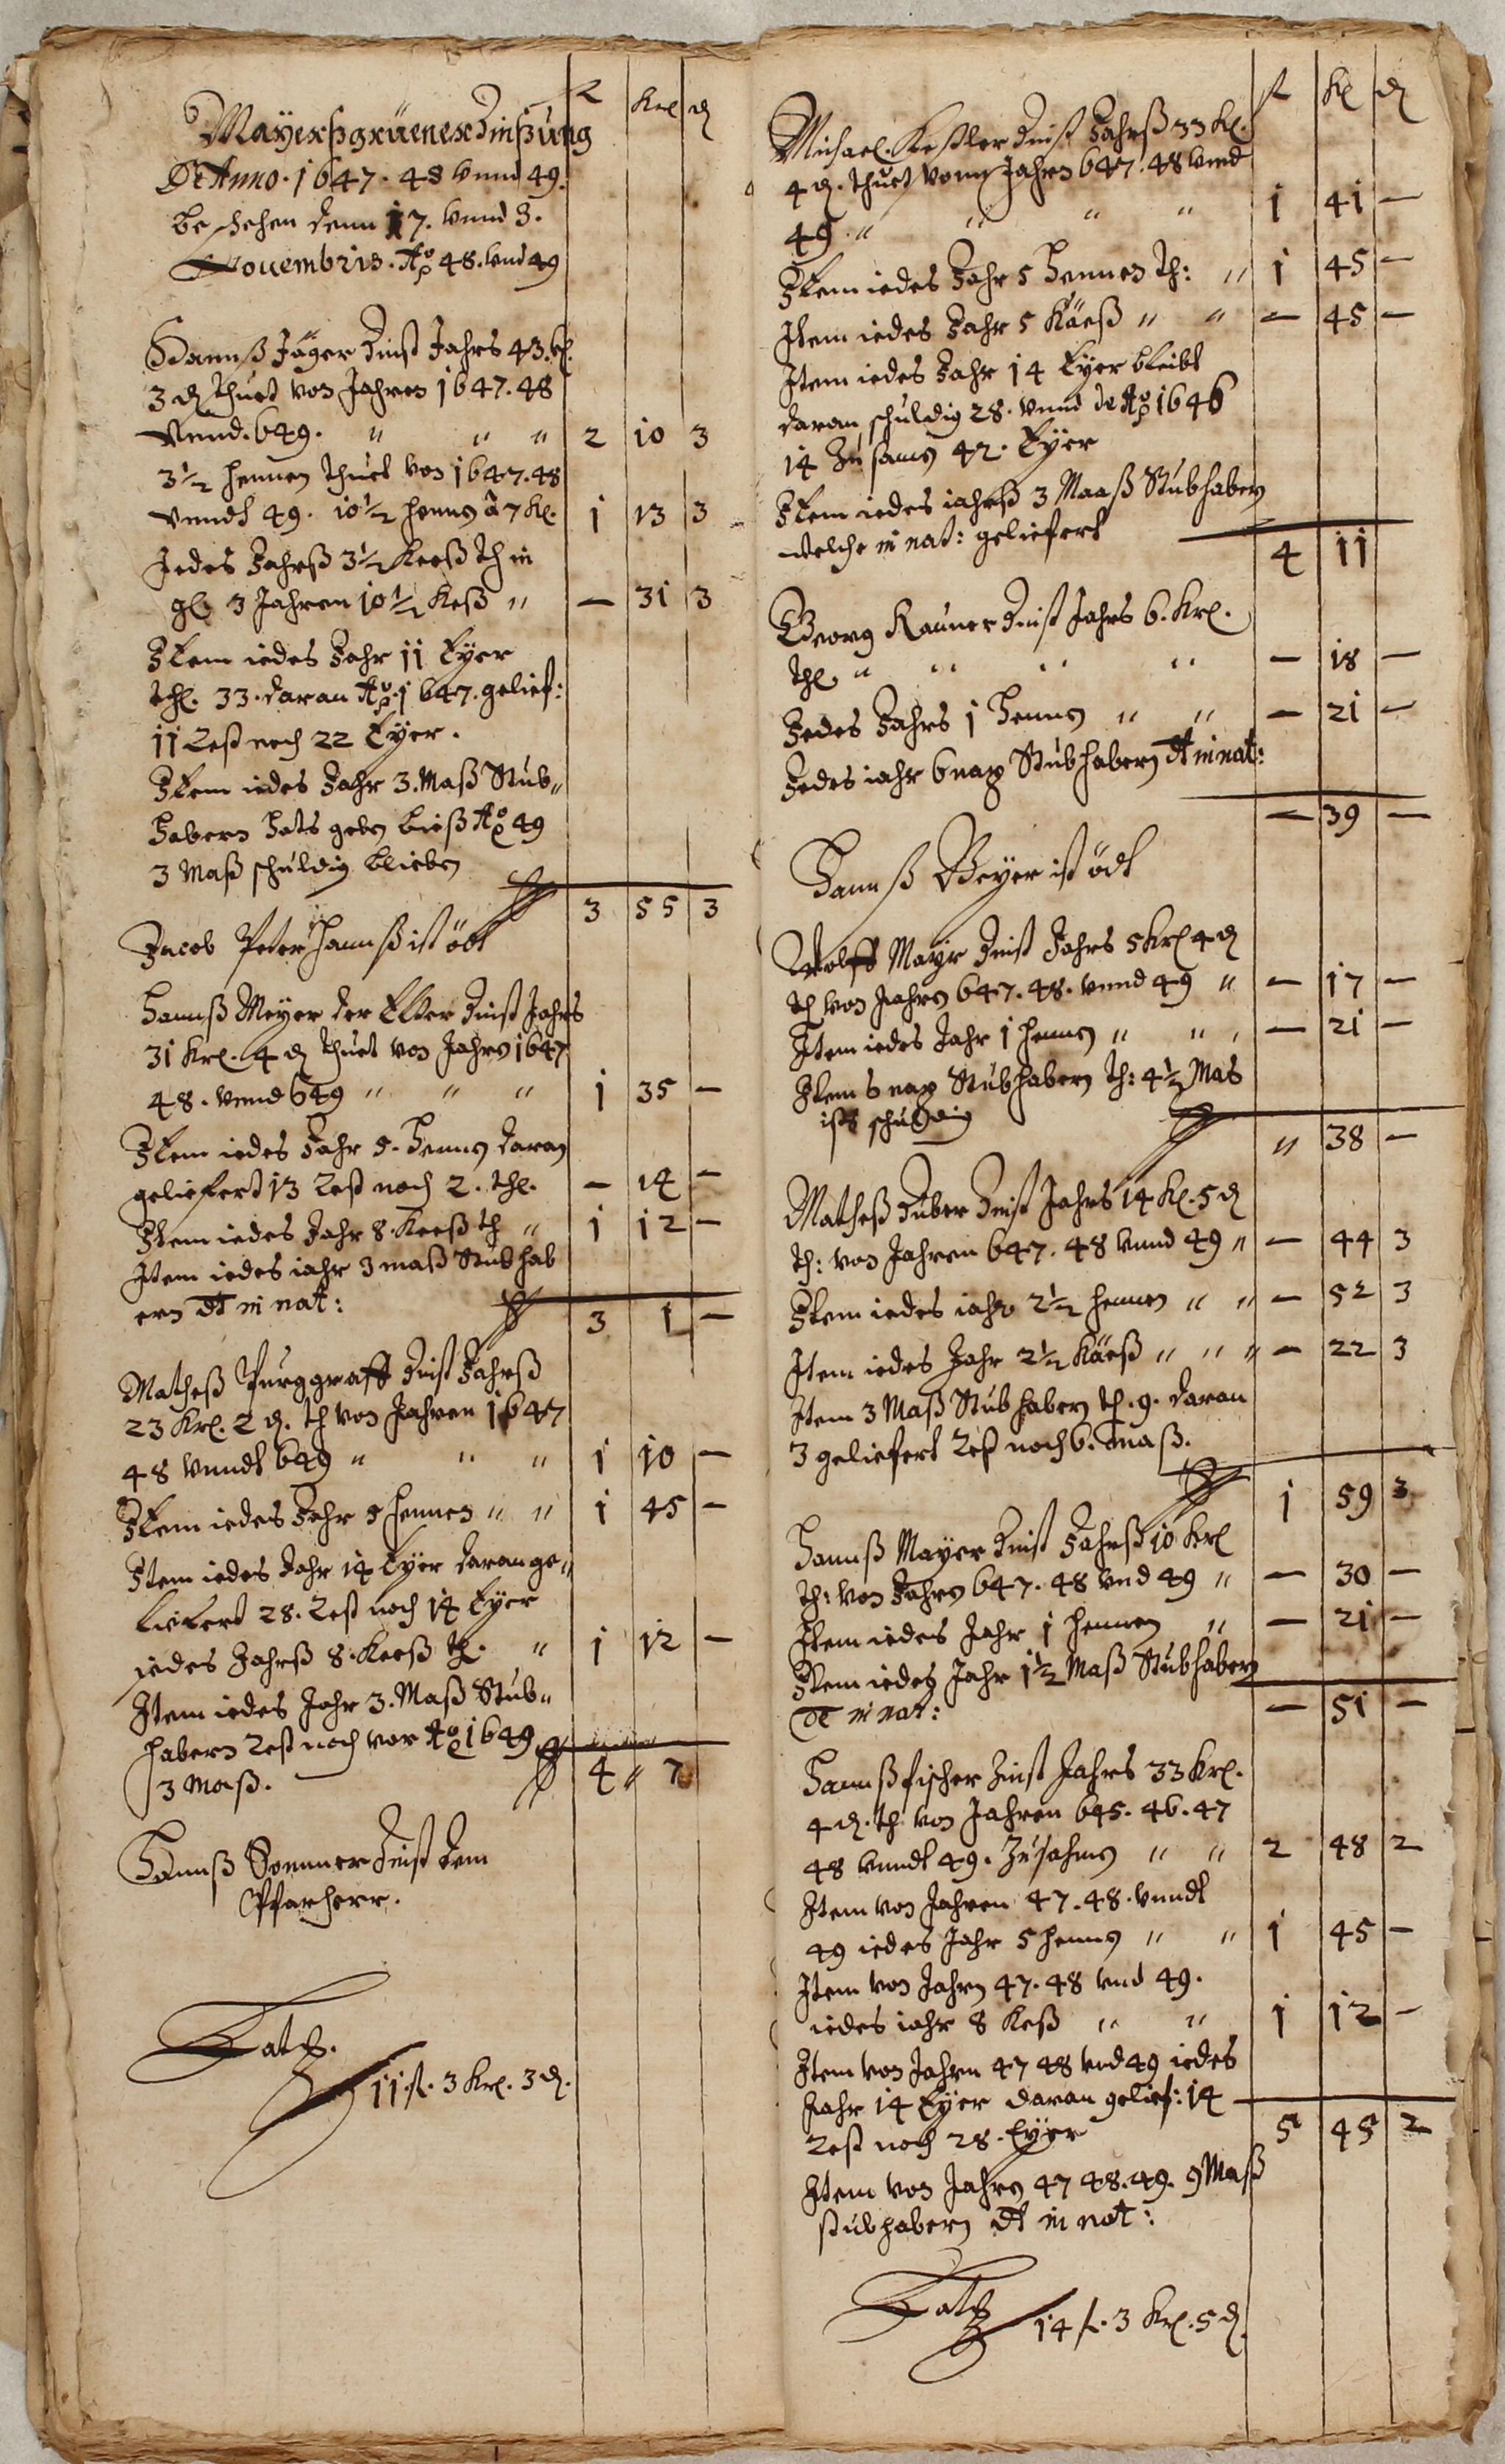 fl Krl ₰
Mayerßgrüener Zinßung
De Anno. 1647. 48 vnnd 49.
beschehen denn 17. vnnd 3.
Nouembris. Aõ 48. vnd 49
Hannß Jäger Zinst Jahrs 43. kl.
3 ₰ thuet von Jahren 1647. 48
vnnd. 649. " " " 2 10 3
3½ hennen thuet von 1647. 48
vnndt 49. 10½ henn à 7 Kl. 1 13 3
Jedes Jahrß 3½ Keeß th in
gl. 3 Jahren 10½ Keß " — 31 3
Item iedes Jahr 11 Eyer
thl. 33. daran Aõ. 1647. gelief:
11 Rest noch 22 Eyer.
Item iedes Jahr 3. Maß Stub"
habern hats geben bieß Aõ 49
3 Maß schuldig blieben
3 55 3
Jacob Peter Hannß ist ödt
Hannß Meyer der Elter Zinst Jahrs
31 Krl. 4 ₰ thuet von Jahrn 1647
48. vnnd 649 " " " 1 35 —
Item iedes Jahr 5. Henn daran
geliefert 13 Rest noch 2. thl. — 14 —
Item iedes Jahr 8. Keeß th " 1 12 —
Item iedes iahr 3 maß Stubhab
ern dt in nat:
3 1 —
Matheß Purggraff Zinst Jahrß
23 Krl. 2 ₰. th von Jahren 1647
48 vnndt 649 " " " 1 10 —
Item iedes Jahr 5 hennen " " 1 45 —
Item iedes Jahr 14 Eyer daran ge"
liefert 28. Rest noch 14 Eyer
iedes Jahrß 8. Keeß th. " 1 12 —
Item iedes Jahr 3. Maß Stub"
habern Rest noch vor Aõ 1649
3 Maß. 4 " 7
Hannß Sommer Zinst dem
Pfarherr.
Latß.
11 fl. 3 Krl. 3 ₰.
fl Kl ₰
Michael. Keßler Zinst Jahrß 33 Kl.
4 ₰. thuet vonn Jahren 647. 48 vnnd
49 " " " " 1 41 —
Item iedes Jahr 5 Hennen th: " 1 45 —
Item iedes Jahr 5 Käeß " " — 45 —
Item iedes Jahr 14 Eyer bleibt
daran schuldig 28. vnnd de Aõ 1646
14 Zu samen 42. Eyer
Item iedes iahrß 3 Maaß Stubhabern
welche in nat: geliefert
4 11
Georg Rauner Zinst Jahrs 6. Krl.
thl. " " " " — 18 —
Jedes Jahrs 1 Henn " " — 21 —
Jedes iahr 6 nap Stubhabern dt in nat:
— 39 —
Hannß Beyer ist ödt
Wolff Mayr Zinst Jahrs 5 Krl 4 ₰
th von Jahrn 647. 48. vnnd 49 " — 17 —
Item iedes Jahr 1 henn " " — 21 —
Item 5 nap Stubhabern th: 4½ Mas
ists schuldig
" 38 —
Matheß Huber Zinst Jahrs 14 Kl. 5 ₰
th: von Jahren 647. 48 vnnd 49 " — 44 3
Item iedes iahr 2½ hennen " " — 52 3
Item iedes Jahr 2½ Käeß " " " — 22 3
Item 3 Maß Stubhabern th. 9. daran
3 geliefert Rest noch 6. maß.
1 59 3
Hannß Mayer Zinst Jahrß 10 Krl
th: von Jahrn 647. 48 vnd 49 " — 30 —
Item iedes Jahr 1 hennen " — 21 —
Item iedes Jahr 1½ Maß Stubhabern
dt in nat: — 51 —
Hannß fischer Zinst Jahrs 33 Krl.
4 ₰. th. von Jahren 645. 46. 47
48 vnndt 49. Zusahmen " " 2 48 2
Item von Jahren 47. 48. vnndt
49 iedes Jahr 5 henn " " 1 45 —
Item von Jahrn 47. 48 vnd 49.
iedes iahr 8 Keß " " 1 12 —
Item von Jahrn 47 48 vnd 49 iedes
Jahr 14 Eyer daran gelief: 14
Rest noch 28. Eyer 5 45 2
Item von Jahrn 47 48. 49. 9 Maß
stubhabern dt in nat:
Latß
14 fl. 3 Krl. 5 ₰.